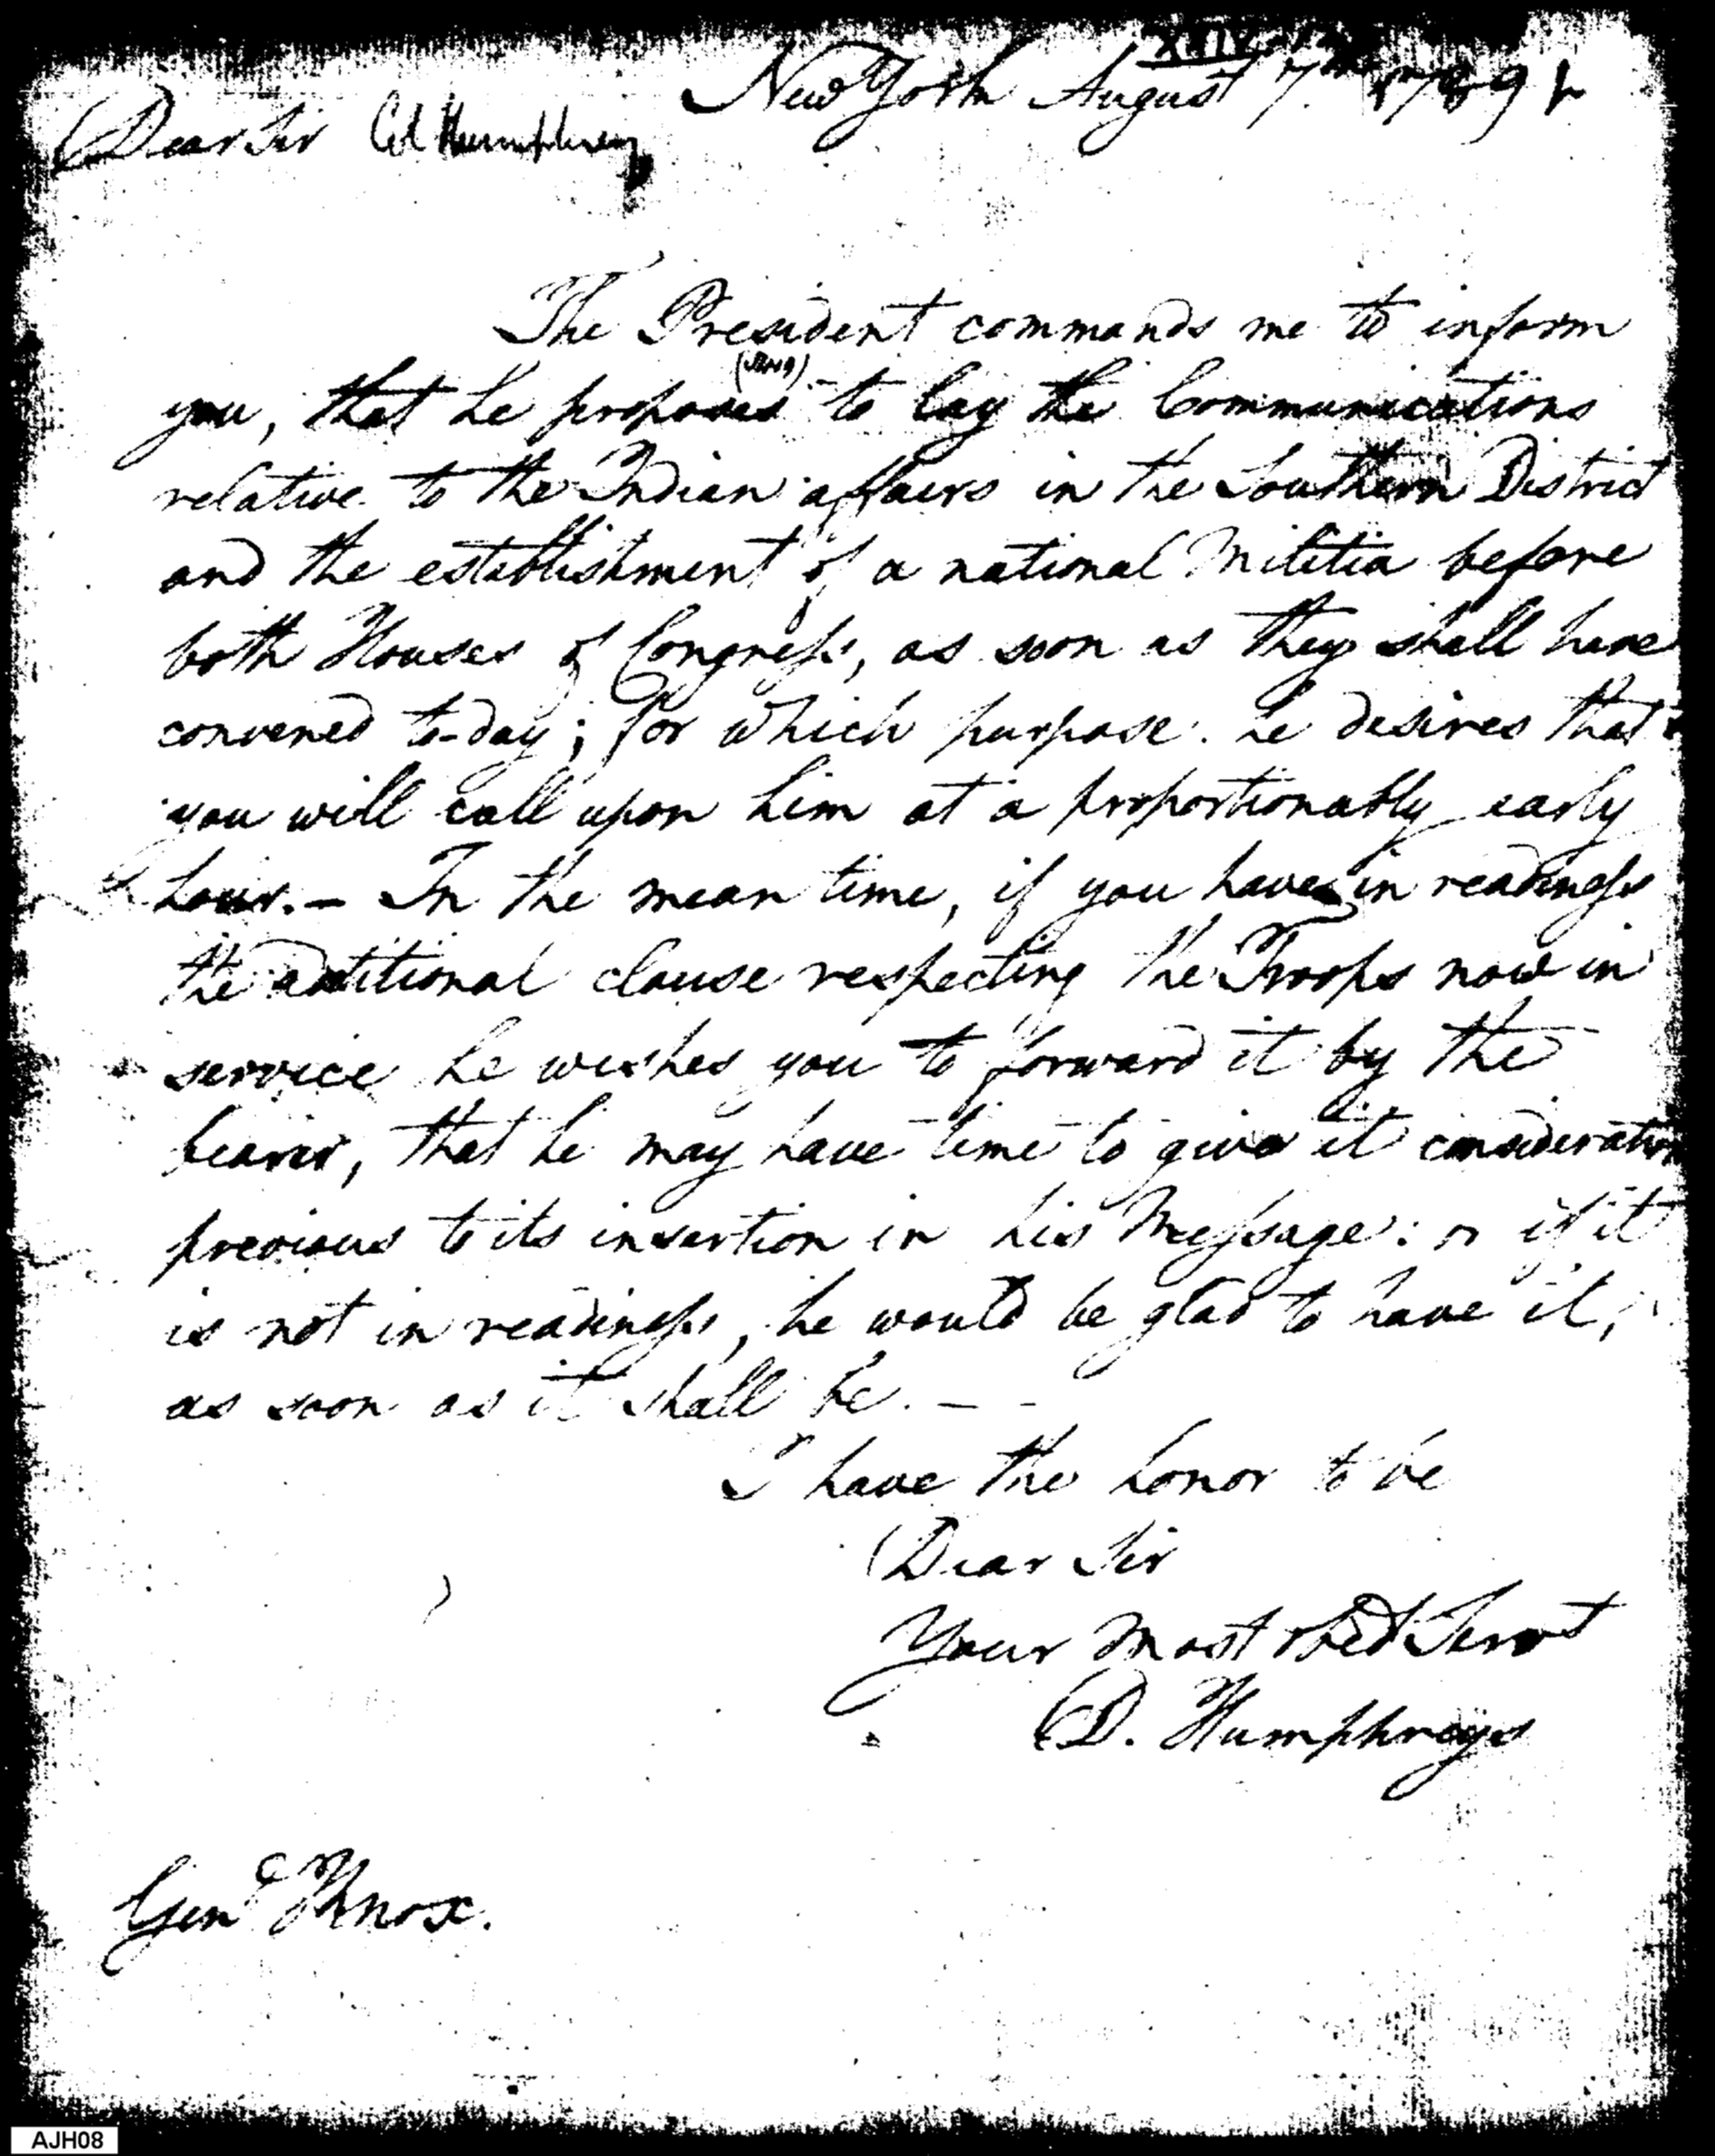 New York August 7th 1789
Dear Sir Col Humphreys
The President commands me to inform
you, that he proposes to lay the Communications
relative to the Indian affairs in the Southern District
and the establishment of a national Militia before
both Houses of Congress, as soon as they shall have
convened to-day; for which purpose he desires that
you will call upon him at a proportionably early
hour. — In the mean time, if you have in readiness
the additional clause respecting the Troops now in
service he wishes you to forward it by the
bearer, that he may have time to give it consideration
previous to its insertion in his Message: or if it
is not in readiness, he would be glad to have it,
as soon as it shall be. —
I have the honor to be
Dear Sir
Your most obed Servt
D. Humphreys
Genl Knox.
AJH08